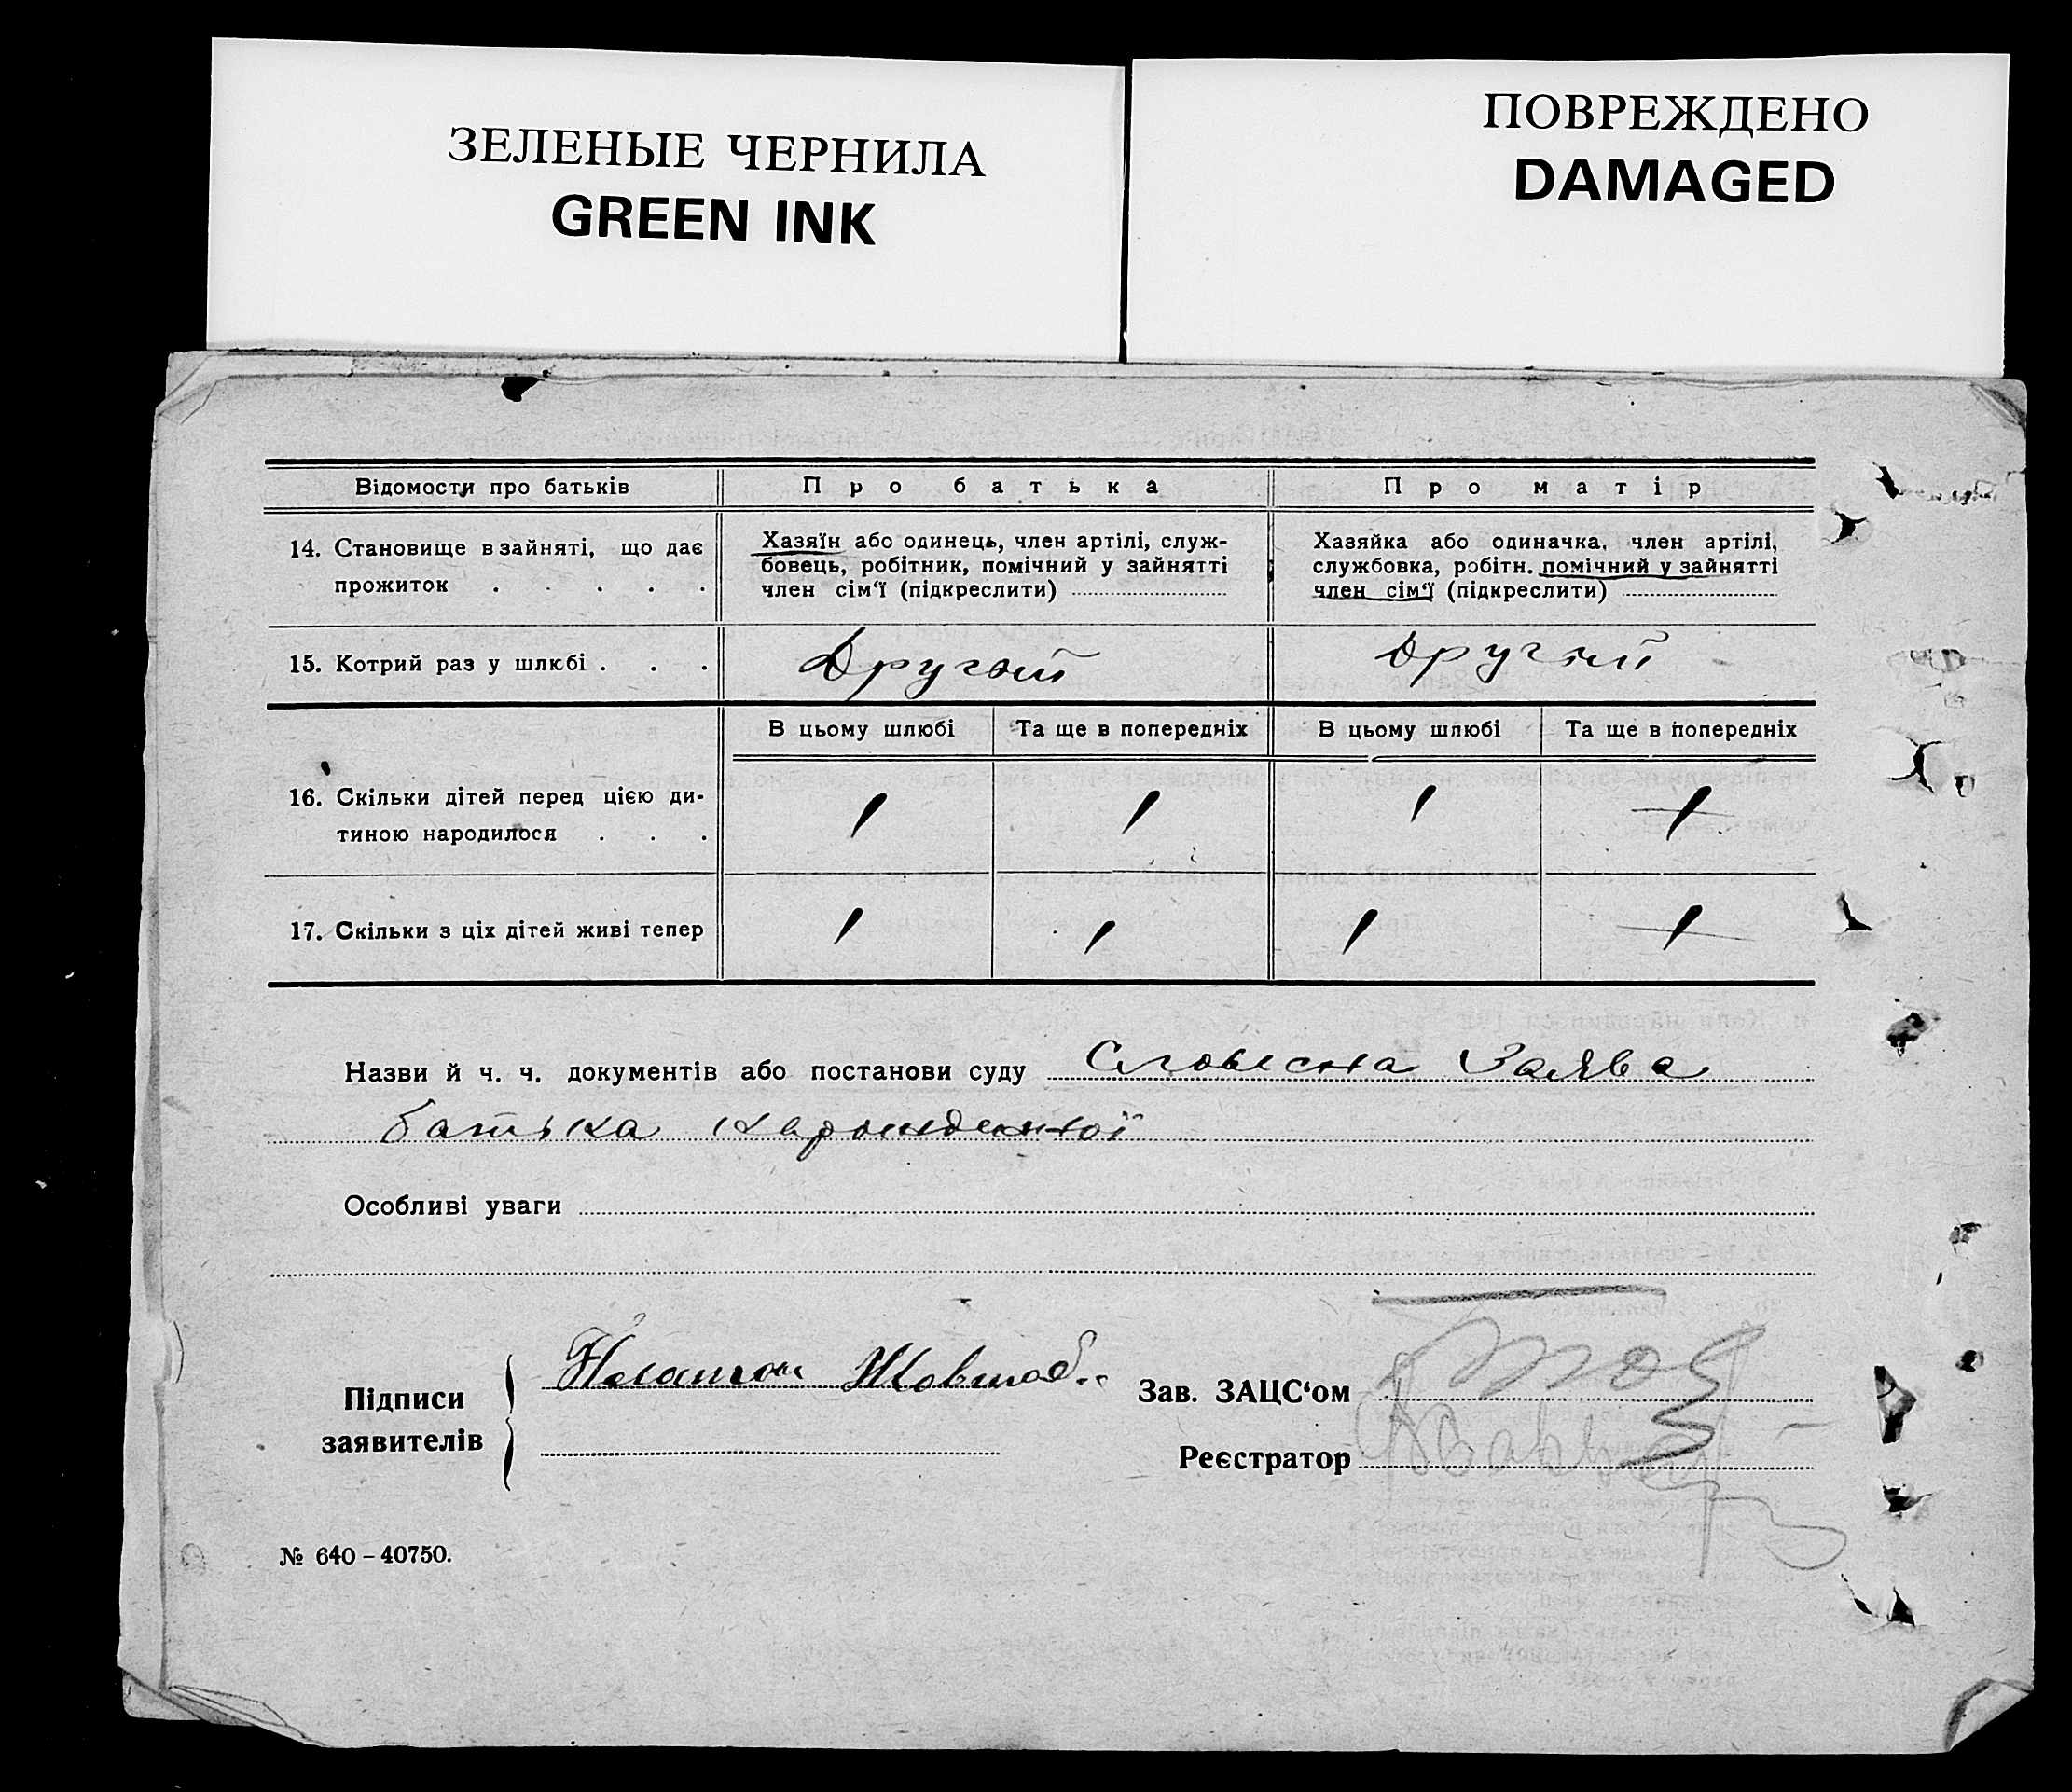 ЗЕЛЕНЫЕ ЧЕРНИЛА
GREEN INK
ПОВРЕЖДЕНО
DAMAGED
Відомости про батьків Про батька Про матір
14. Становище в зайняті, що дає прожиток . . . . .
Хазяїн або одинець, член артілі, служ-
бовець, робітник, помічний у зайнятті
член сім‘ї (підкреслити)
Хазяйка або одиначка, член артілі,
службовка, робітн. помічний у зайнятті
член сім‘ї (підкреслити)
15. Котрий раз у шлюбі . . . Другий Другий
В цьому шлюбі Та ще в попередніх В цьому шлюбі Та ще в попередніх
16. Скільки дітей перед цією ди-
тиною народилося . . . 1 1 1 1
17. Скільки з ціх дітей живі тепер 1 1 1 1
Назви й ч. ч. документів або постанови суду Словесна Заява
батька
Особливі уваги
Підписи
заявителів
Зав. ЗАЦС‘ом
Реєстратор
№ 640 – 40750.